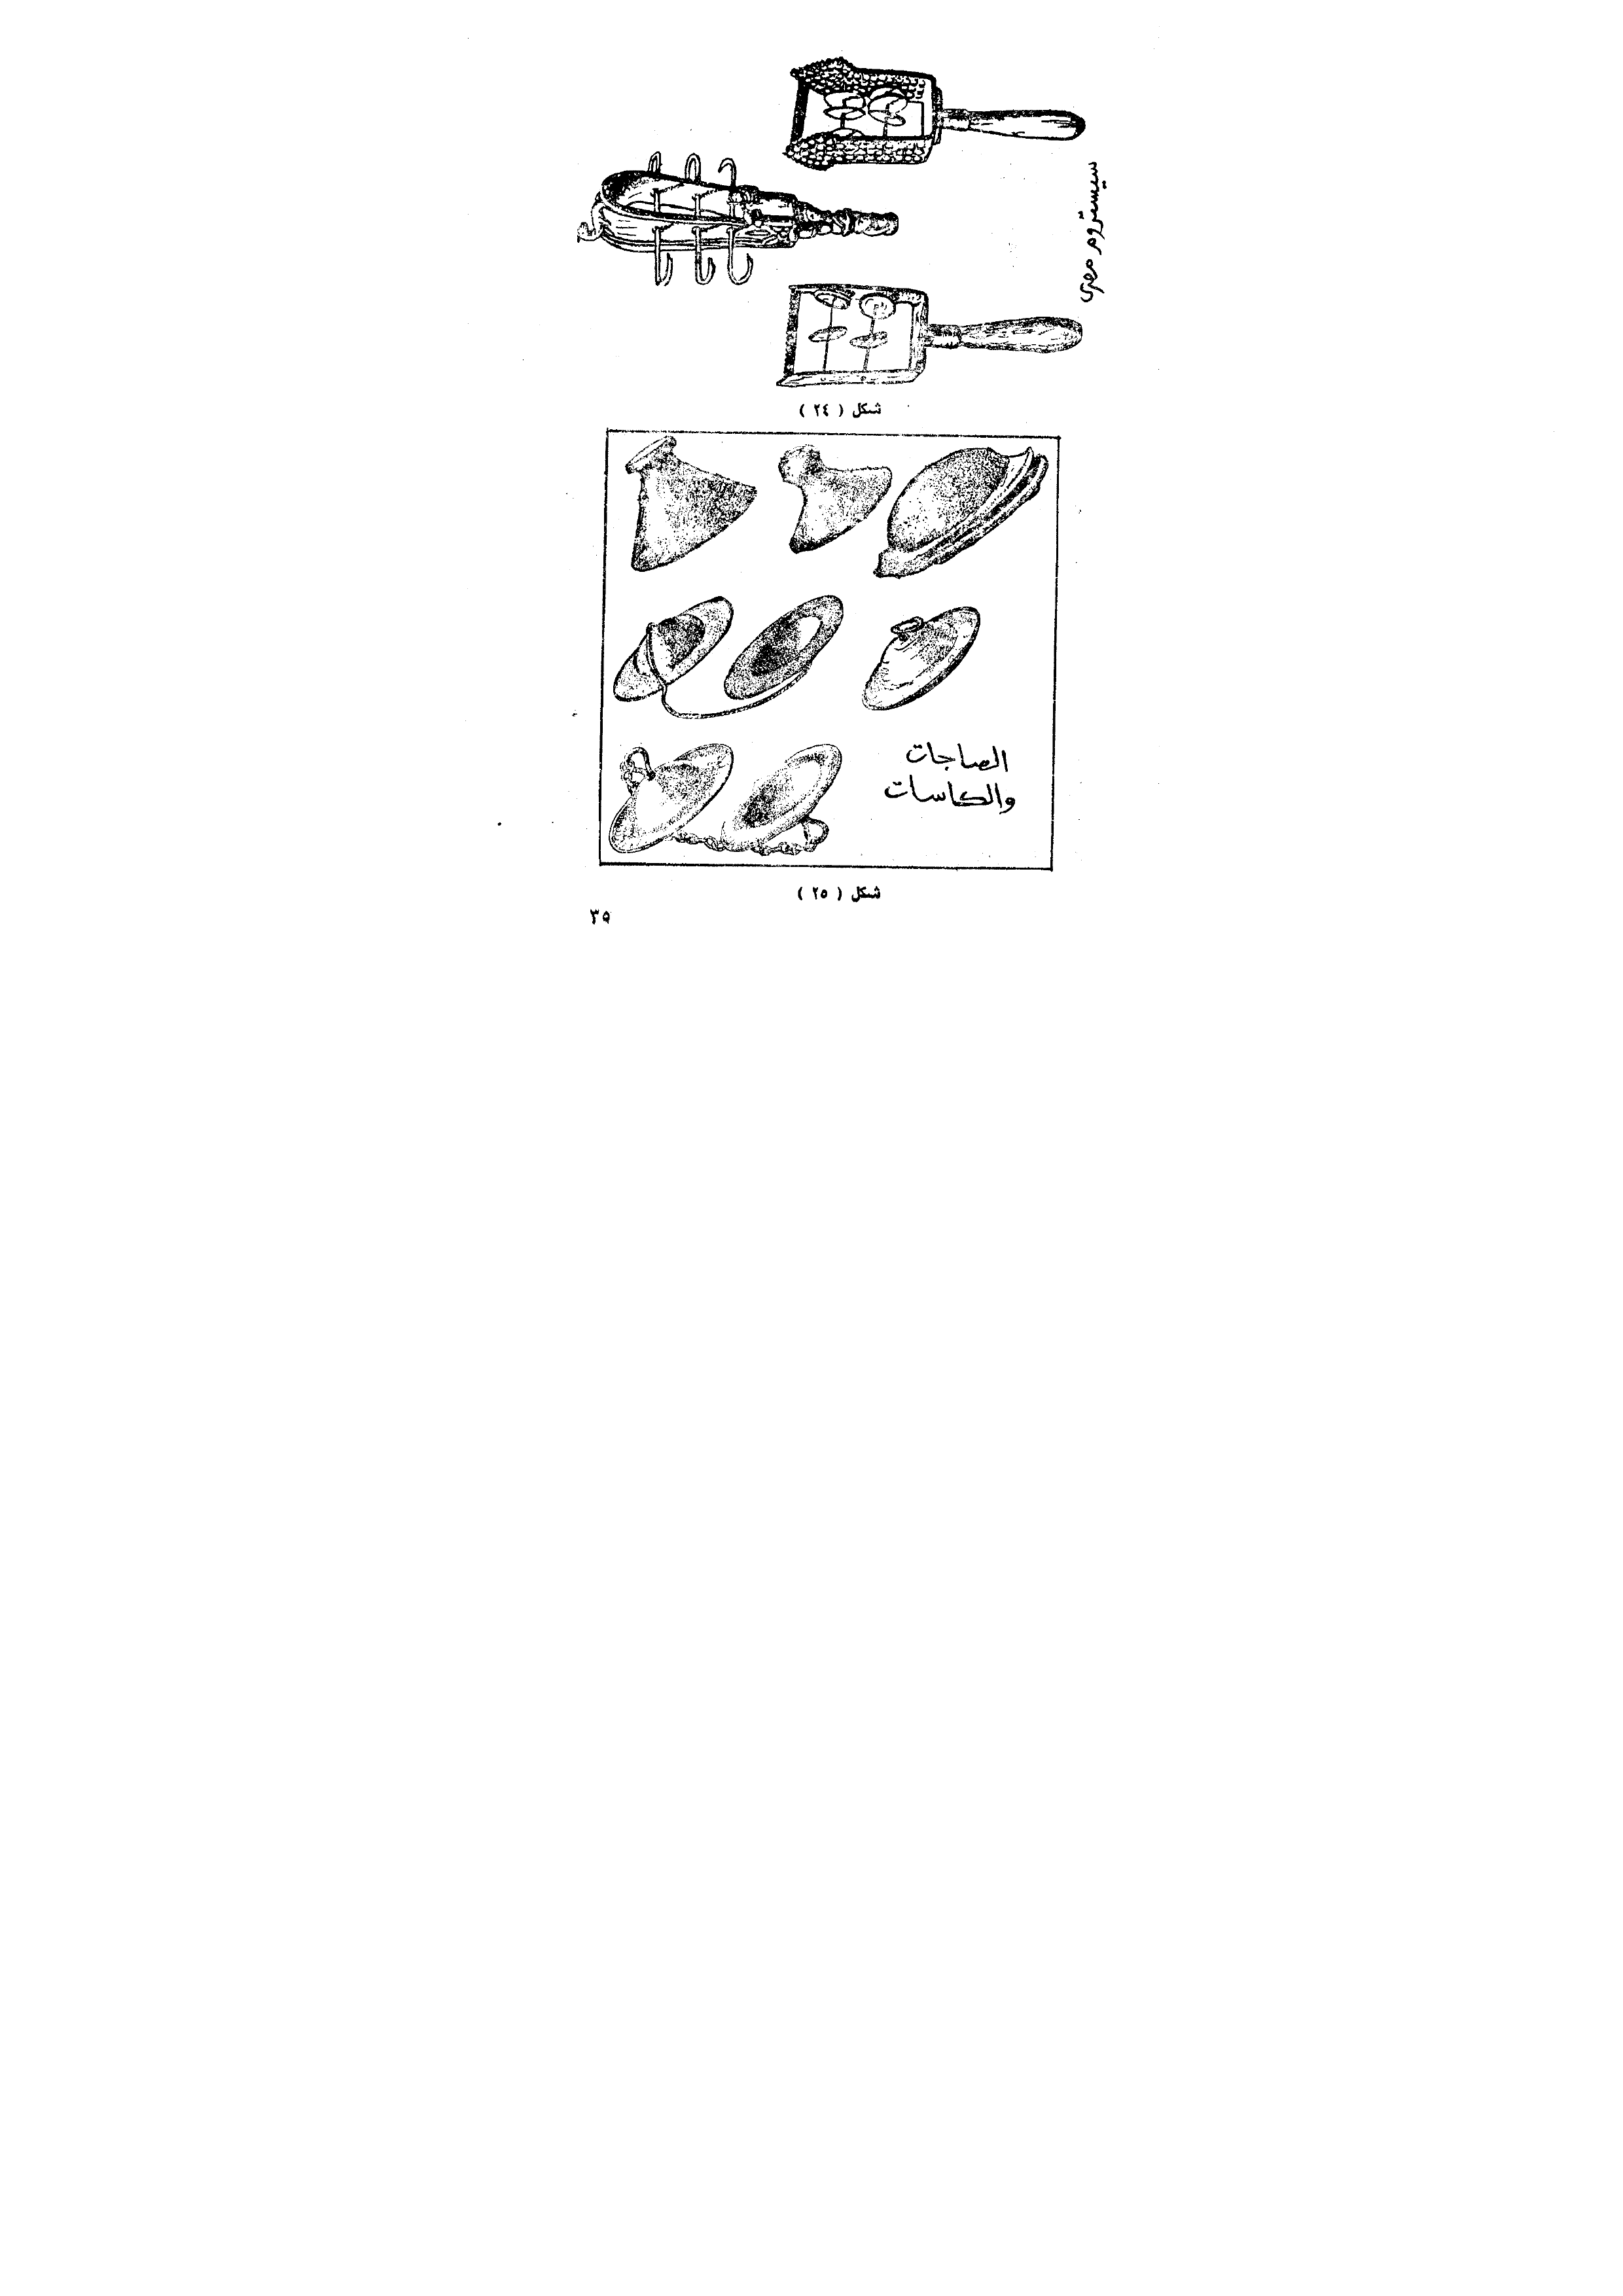 سيستروم مصرى
شكل ( ٢٤ )
الصاجات
والكاسات
شكل ( ٢٥ )
٣٩